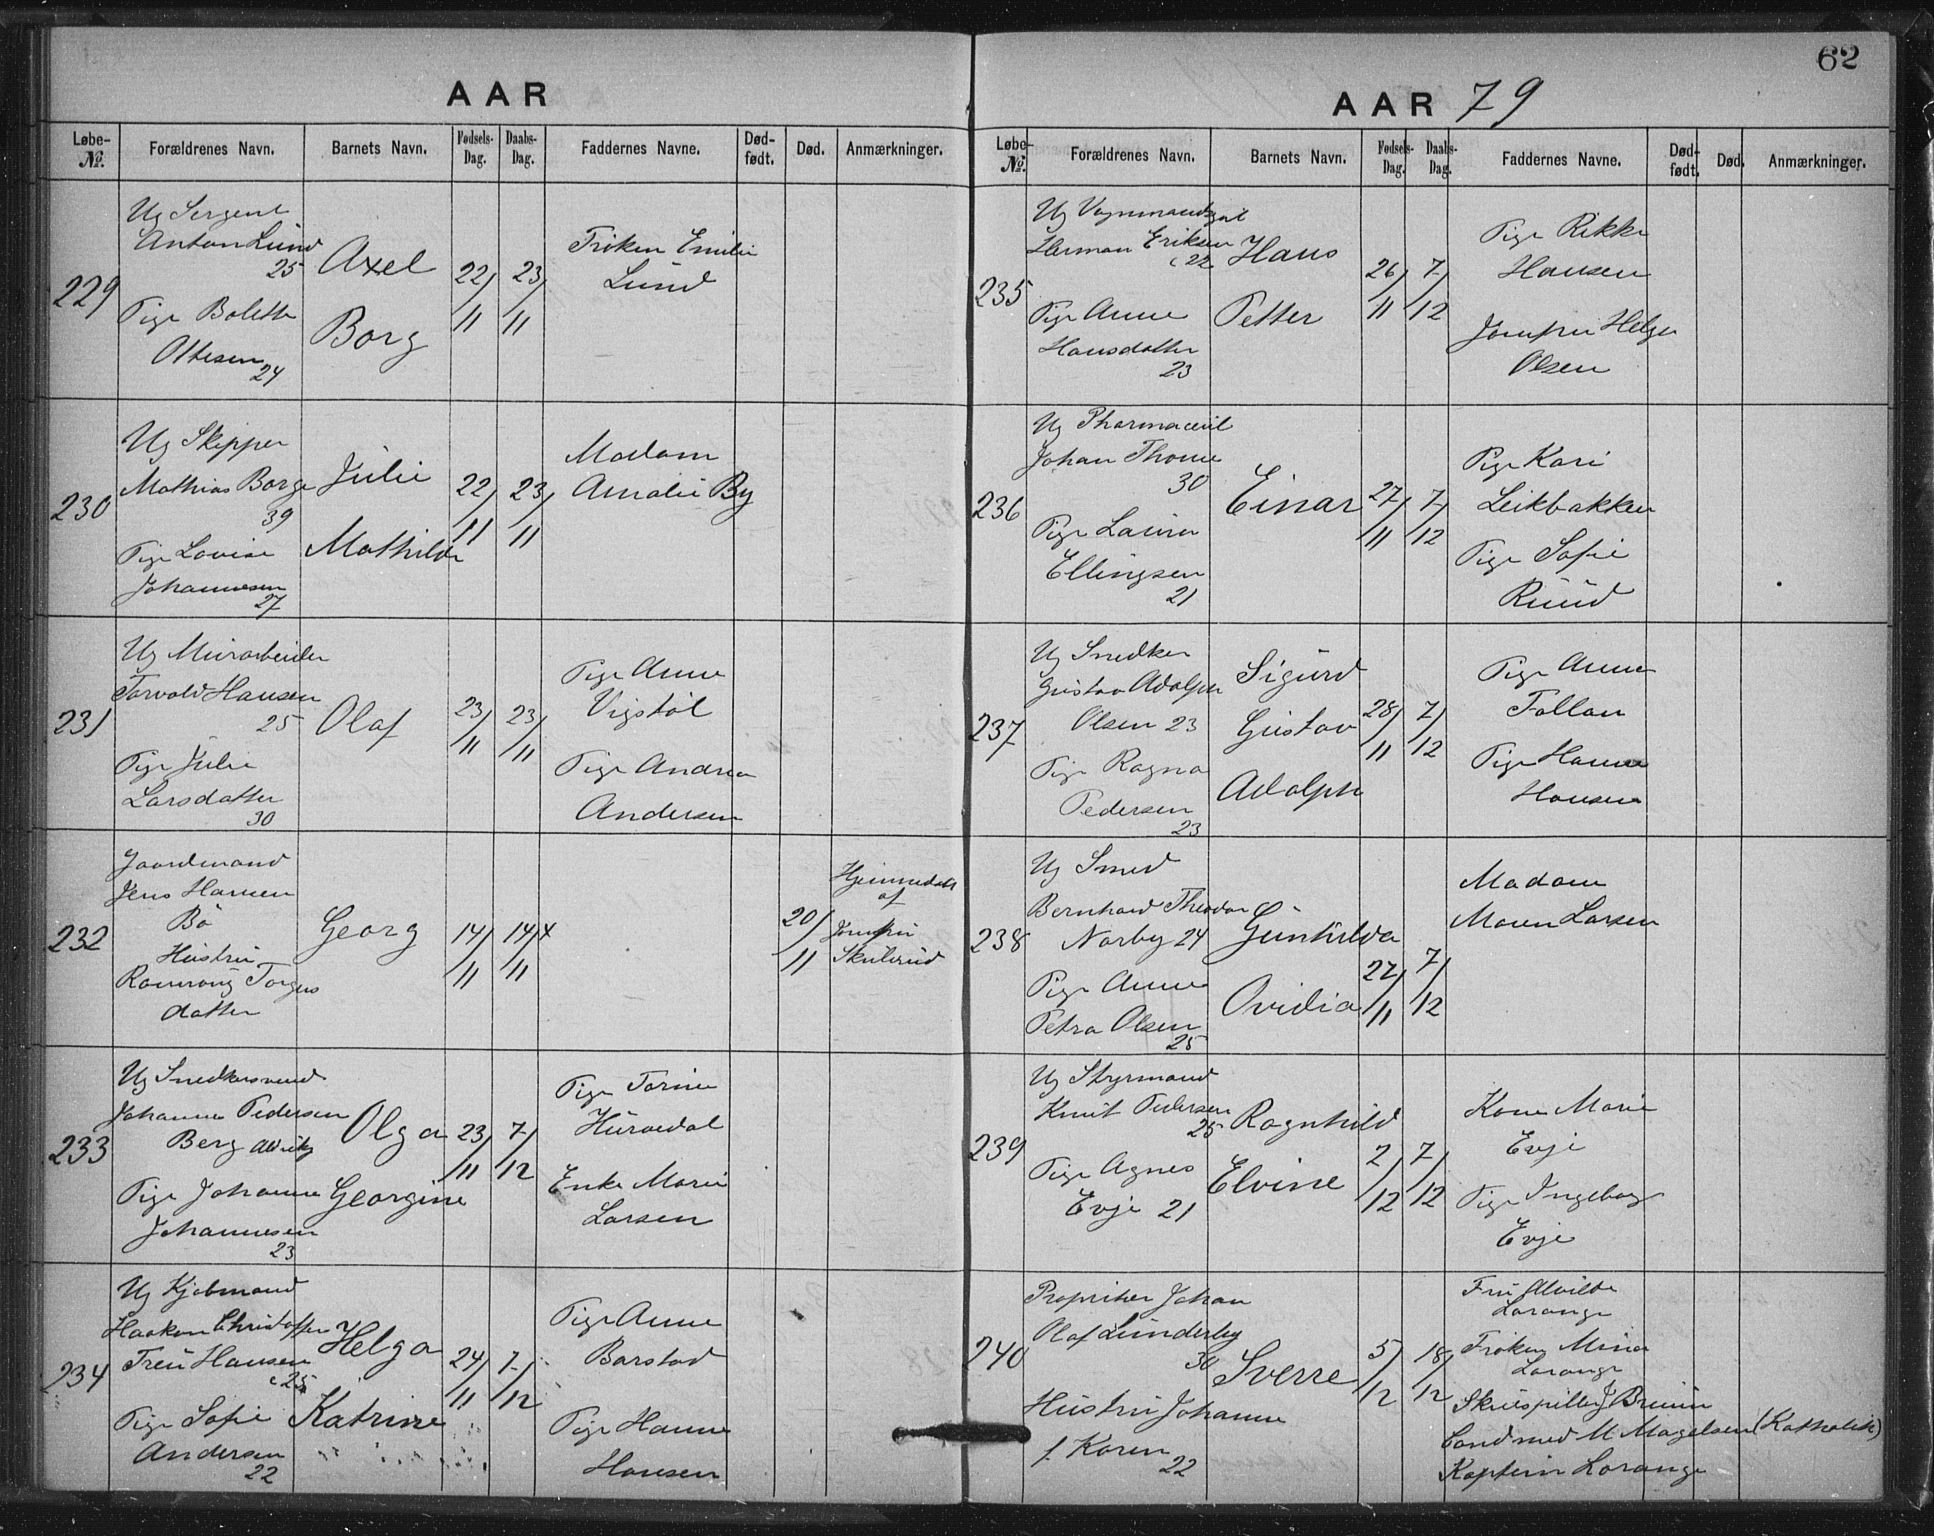 62
AAR
Løbe-No. Forældrenes Navn. Barnets Navn. Fødsels-Dag. Daabs-Dag. Faddernes Navne. Død-født. Død. Anmærkninger.
229
Ug Sergent
Anton Lund
25
Pige Bolette
Ottesen
24
Axel
Borg
22/11 23/11
Frøken Emilie
Lund
230
Ug Skipper
Mathias Borge
39
Pige Lovise
Johannesen
27
Julie
Mathilde
22/11 23/11
Madam
Amalie By
231
Ug Murarbeider
Torvald Hansen
25
Pige Julie
Larsdatter
30
Olaf
23/11 23/11
Pige Anne
Vigstøl
Pige Andrea
Andersen
232
Gaardmand
Jens Hansen
Bö
Hustru
Torgus
datter
Georg
14/11 14/11 x
20/11
Hjemmedøbt
af
Jomfru
Skulerud
233
Ug Snedkersvend
Johannes Pedersen
Berg
Pige Johanne
Johannesen
23
Olga
Georgine
23/11 7/12
Pige Torine
Hurdal
Enke Marie
Larsen
234
Ug Kjøbmand
Haakon Christoffer
Hansen
c 25
Pige Sofie
Andersen
22
Helga
Katrine
24/11 7/12
Pige Anne
Barstad
Pige Hanne
Hansen
AAR 79
Løbe-No. Forældrenes Navn. Barnets Navn. Fødsels-Dag. Daabs-Dag. Faddernes Navne. Død-født. Død. Anmærkninger.
235
Ug Vognmandsgut
Herman Eriksen
c 22
Pige Anne
Hansdatter
23
Hans
Petter
26/11 7/12
Pige Rikke
Hansen
Jomfru Helga
Olsen
236
Ug Pharmaceut
Johan Thome
30
Pige Laura
Ellingsen
21
Einar
27/11 7/12
Pige Kari
Leikbakken
Pige Sofie
Ruud
237
Ug Snedker
Gustav Adolph
Olsen 23
Pige Ragna
Pedersen
23
Sigurd
Gustav
Adolph
28/11 7/12
Pige Anne
Follan
Pige Hanne
Hansen
238
Ug Smed
Bernhard Theodor
Norby 24
Pige Anne
Petra Olsen
25
Gunhilda
Ovidia
27/11 7/12
Madam
Maren Larsen
239
Ug Styrmand
Knut Pedersen
25
Pige Agnes
Evje 21
Ragnhild
Elvine
2/12 7/12
Kone Marie
Evje
Pige Ingeborg
Evje
240
Propritier Johan
Olaf Lunderby
30
Hustru Johanne
f. Koren
22
Sverre
5/12 18/12
Fru Alvilde
Lorange
Frøken Mina
Lorange
Skuespiller J Bruun
Cand med M Magelsen (Katholik)
Kaptein Lorange